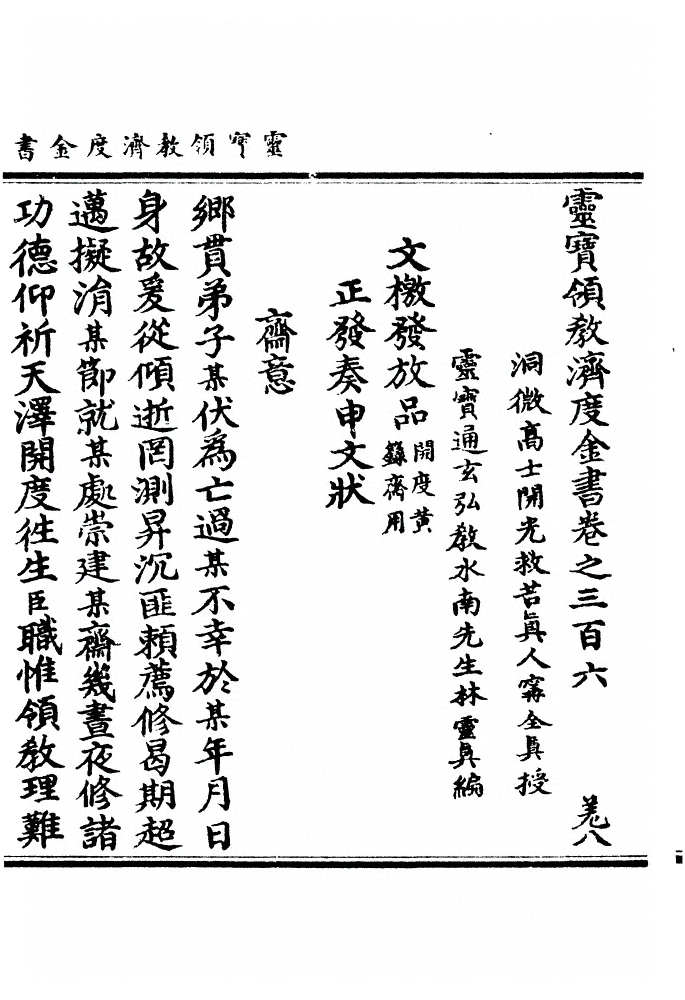 靈寶領教濟度金書
靈寶領教濟度金書卷之三百六 差八
洞微高士開光救苦眞人甯全眞授
靈寶通玄弘教水南先生林靈眞編
文檄發放品開度黃籙齋用
正發奏申文狀
齋意
鄉貫弟子某伏為亡過某不幸於某年月日
身故爰從傾逝罔測昇沉匪頼薦修曷期超
邁擬涓某節就某處崇建某齋幾晝夜修諸
功德仰祈天澤開度徃生臣職惟領教理難